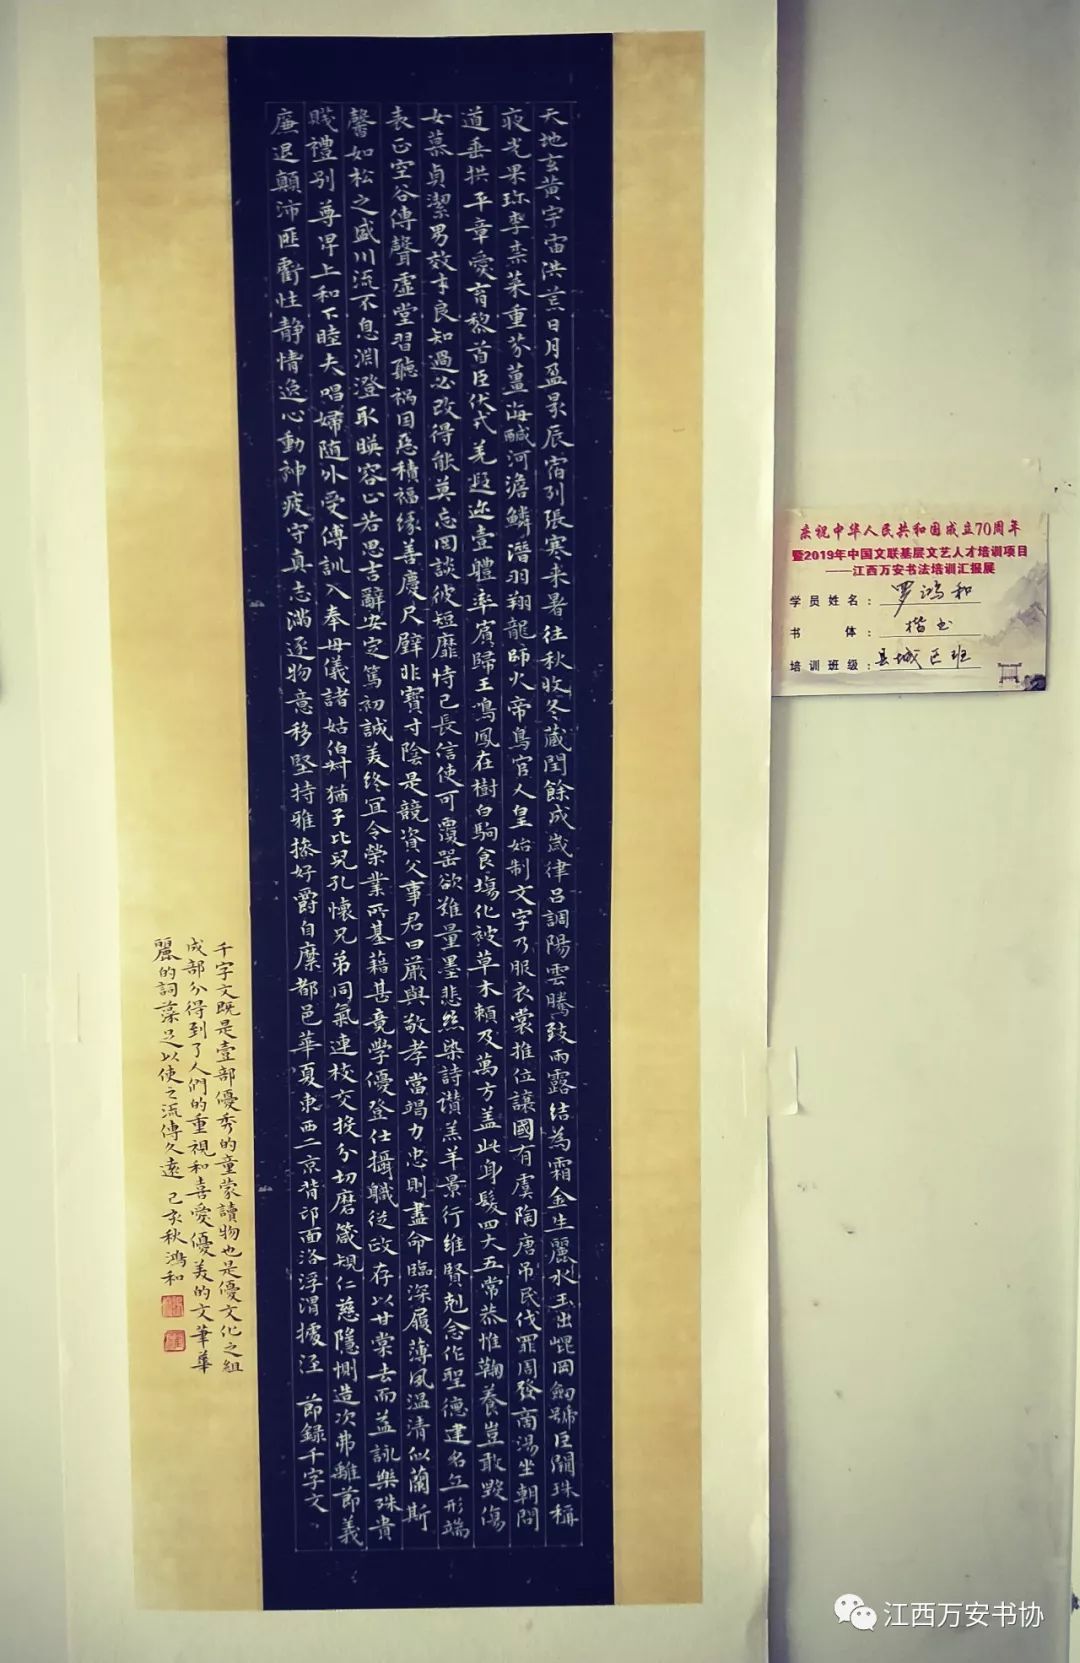 天地玄黃宇宙洪荒日月盈昃辰宿列張寒来暑往秋收冬藏閏餘成歲律吕調陽雲騰致雨露結為霜金生麗水玉出崑岡劒號巨闕珠稱
夜光果珎李柰菜重芥薑海鹹河澹鱗潛羽翔龍師火帝鳥官人皇始制文字乃服衣裳推位讓國有虞陶唐吊民伐罪周發商湯坐朝問
道垂拱平章愛育黎首臣伏戎羌遐迩壹體率賓歸王鳴鳳在樹白駒食場化被草木賴及萬方盖此身髮四大五常恭惟鞠養豈敢毁傷
女慕貞潔男效才良知過必改得能莫忘罔談彼短靡恃己長信使可覆器欲難量墨悲絲染詩讚羔羊景行維賢剋念作聖德建名立形端
表正空谷傳聲虛堂習聽禍因惡積福緣善慶尺璧非寶寸陰是競資父事君曰嚴與敬孝當竭力忠則盡命臨深履薄夙温清似蘭斯
馨如松之盛川流不息淵澄取暎容止若思言辭安定篤初誠美终宜令榮業所基藉甚竟學優登仕攝職從政存以甘棠去而益詠樂殊貴
賤禮别尊卑上和下睦夫唱婦随外受傅訓入奉母儀諸姑伯叔猶子比兒孔懷兄弟同氣連枝交投分切磨箴規仁慈隱惻造次弗離節義
廉退顛沛匪虧性静情逸心動神疲守真志滿逐物意移堅持雅操好爵自縻都邑華夏東西二京背邙面洛浮渭據泾 節録千字文
千字文既是壹部優秀的童蒙讀物也是優文化之組
成部分得到了人們的重視和喜愛優美的文筆華
麗的詞藻足以使之流傳久遠 己亥秋鴻和
庆祝中华人民共和国成立70周年
暨2019年中国文联基层文艺人才培训项目
——江西万安书法培训汇报展
学员姓名：罗鸿和
书 体：楷书
培训班级：县城区班
江西万安书协